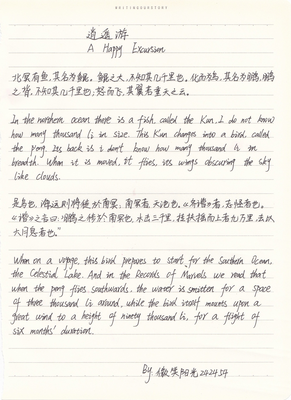 逍遥游
A Happy Excursion
北冥有鱼，其名为鲲。鲲之大，不知其几千里也。化而为鸟，其名为鹏。鹏
之背，不知其几千里也；怒而飞，其翼若垂天之云。
In the northern ocean there is a fish, called the Kun, I do not know
how many thousand Li in size. This Kun changes into a bird, called
the Peng. Its back is I don't know how many thousand Li in
breadth. When it is moved, It flies, its wings obscuring the sky
like clouds.
是鸟也，海运则将徙于南冥，南冥者，天池也。《齐谐》者，志怪者也。
《谐》之言曰：“鹏之徙于南冥也，水击三千里，抟扶摇而上者九万里，去以
六月息者也。”
When on a voyage, this bird prepares to start for the Southern Ocean,
the Celestial Lake. And in the Records of Marvels we read that
when the peng flies southwards, the water is smitten for a space
of three thousand Li around, while the bird itself mounts upon a
great wind to a height of ninety thousand Li, for a flight of
six months' duration.
By. 微笑阳光242454